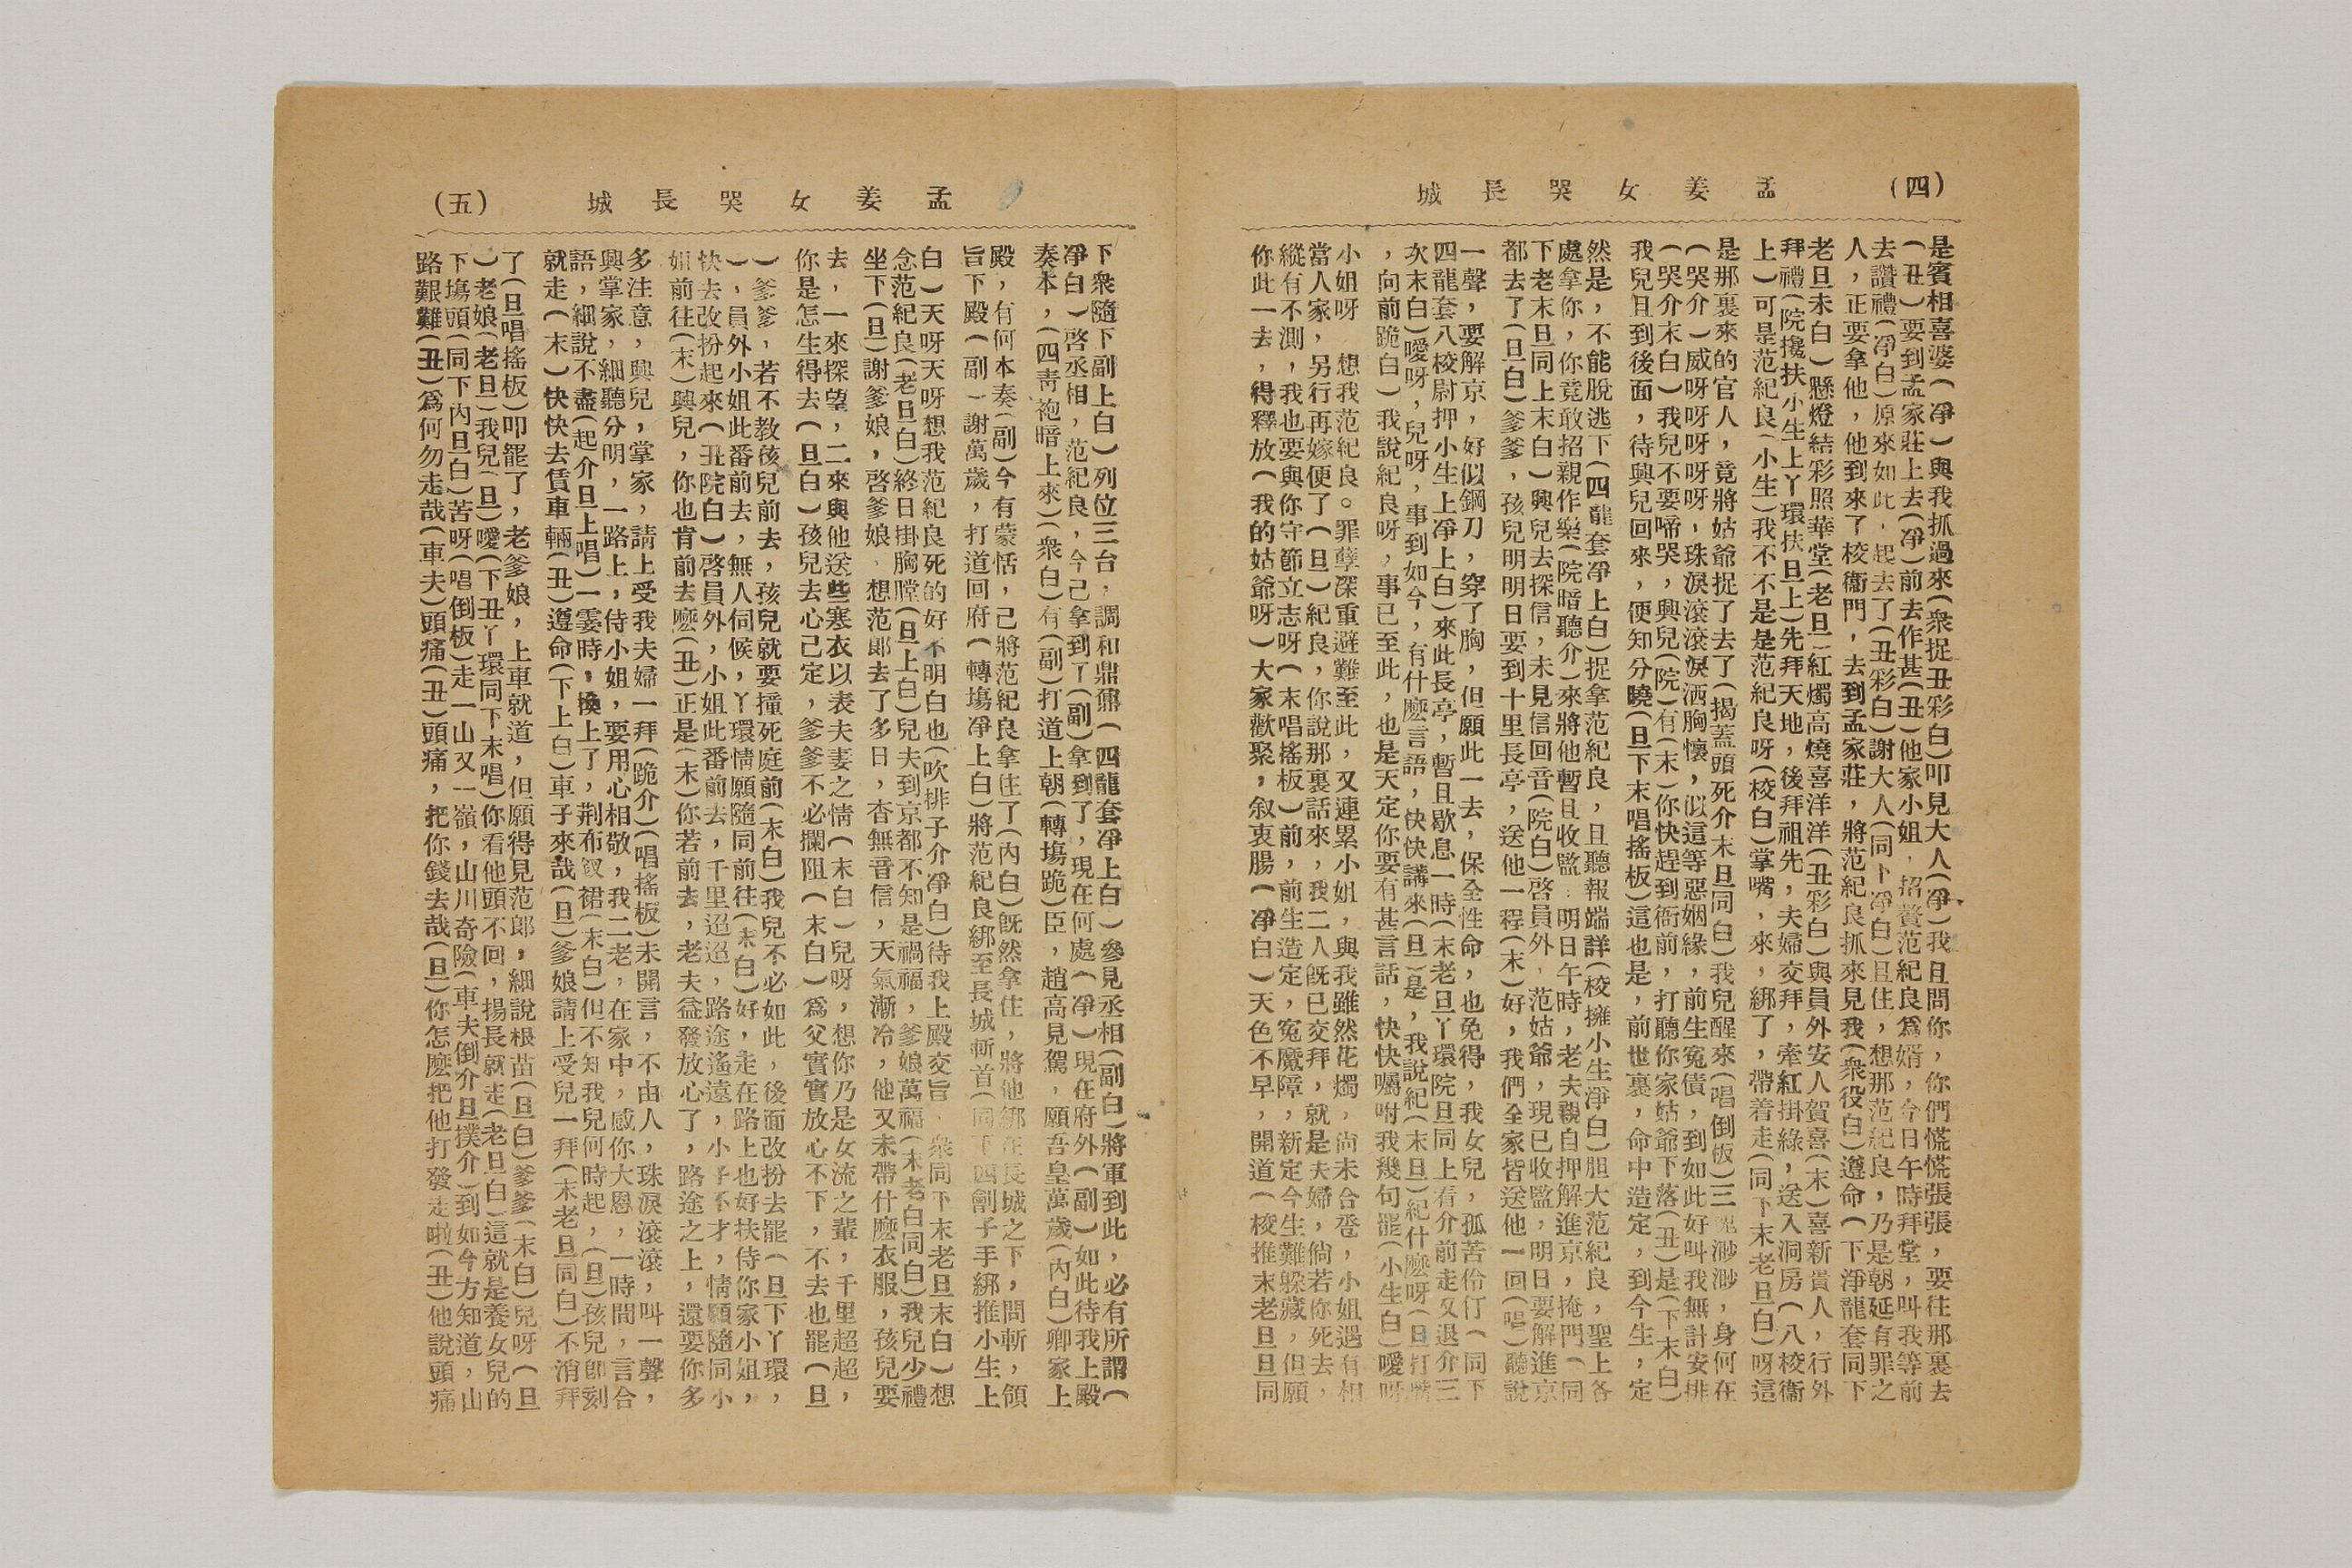 (四)
孟姜女哭長城
是賓相喜婆(凈)與我抓過來(衆捉丑彩白)叩見大人(凈)我且問你，你們慌慌張張，要往那裏去
(丑)要到孟家莊上去(凈)前去作甚(丑)他家小姐，招贅范紀良爲婿，今日午時拜堂，叫我等前
去讚禮(凈白)原來如此，起去了(丑彩白)謝大人(同下凈白)且住，想那范紀良，乃是朝延有罪之
人，正要拿他，他到來了校衞門，去到孟家莊，將范紀良抓來見我(衆役白)遵命(下淨龍套同下
老旦末白)懸燈結彩照華堂(老旦)紅燭高燒喜洋洋(丑彩白)與員外安人賀喜(末)喜新貴人，行外
拜禮(院攙扶小生上丫環扶旦上)先拜天地，後拜祖先，夫婦交拜，牽紅掛綠，送入洞房(八校衞
上)可是范紀良(小生)我不不是是范紀良呀(校白)掌嘴，來，綁了，帶着走(同下末老旦白)呀這
是那裏來的官人，竟將姑爺捉了去了(揭蓋頭死介末旦同白)我兒醒來(唱倒板)三魂渺渺，身何在
(哭介)威呀呀呀呀呀，珠淚滾滾淚洒胸懷，似這等惡姻緣，前生寃債，到如此好叫我無計安排
(哭介末白)我兒不要啼哭，興兒(院)有(末)你快趕到衙前，打聽你家姑爺下落(丑)是(下末白)
我兒且到後面，待興兒回來，便知分曉(旦下末唱搖板)這也是，前世裏，命中造定，到今生，定
然是，不能脫逃下(四龍套凈上白)捉拿范紀良，且聽報端詳(校擁小生淨白)胆大范紀良，聖上各
處拿你，你竟敢招親作樂(院暗聽介)來將他暫且收監，明日午時，老夫親自押解進京，掩門(同
下老末旦同上末白)興兒去探信，未見信回音(院白)啓員外，范姑爺，現已收監，明日要解進京
都去了(旦白)爹爹，孩兒明明日要到十里長亭，送他一程(末)好，我們全家皆送他一回(唱)聽說
一聲，要解京，好似鋼刀，穿了胸，但願此一去，保全性命，也免得，我女兒，孤苦伶仃(同下
四龍套八校尉押小生上凈上白)來此長亭，暫且歇息一時(末老旦丫環院旦同上看介前走又退介三
次末白)噯呀，兒呀，事到如今，有什麽言語，快快講來(旦)是，我說紀(末旦)紀什麽呀(旦打嘴
，向前跪白)我說紀良呀，事已至此，也是天定你要有甚言話，快快囑咐我幾句罷(小生白)噯呀
小姐呀 想我范紀良。罪孽深重避難至此，又連累小姐，與我雖然花燭，尚未合卺，小姐遇有相
當人家，另行再嫁便了(旦)紀良，你說那裏話來，我二人旣已交拜，就是夫婦，倘若你死去，
縱有不測，我也要與你守節立志呀(末唱搖板)前，前生造定，寃魔障，新定今生難躲藏，但願
你此一去，得釋放(我的姑爺呀)大家歡聚，叙衷腸(凈白)天色不早，開道(校推末老旦旦同
(五)
孟姜女哭長城
下衆隨下副上白)列位三台，調和鼎鼐(四龍套凈上白)參見丞相(副白)將軍到此，必有所謂(
凈白)啓丞相，范紀良，今己拿到丫(副)拿到了，現在何處(凈)現在府外(副)如此待我上殿
奏本，(四靑袍暗上來)(衆白)有(副)打道上朝(轉塲跪)臣，趙高見駕，願吾皇萬歲(內白)卿家上
殿，有何本奏(副)今有蒙恬，己將范紀良拿住了(內白)旣然拿住，將他綁在長城之下，問斬，領
旨下殿(副)謝萬歲，打道回府(轉塲凈上白)將范紀良綁至長城斬首(同下四劊子手綁推小生上
白)天呀天呀想我范紀良死的好不明白也(吹排子介凈白)待我上殿交旨，衆同下末老旦末白)想
念范紀良(老旦白)終日掛胸膛(旦上白)兒夫到京都不知是禍福，爹娘萬福(末老白同白)我兒少禮
坐下(旦)謝爹娘，啓爹娘，想范郞去了多日，杳無音信，天氣漸冷，他又未帶什麽衣服，孩兒要
去，一來探望，二來與他送些寒衣以表夫妻之情(末白)兒呀，想你乃是女流之輩，千里超超，
你是怎生得去(旦白)孩兒去心己定，爹爹不必攔阻(末白)爲父實實放心不下，不去也罷(旦
)爹爹，若不教孩兒前去，孩兒就要撞死庭前(末白)我兒不必如此，後面改扮去罷(旦下丫環，
)，員外小姐此番前去，無人伺候，丫環情願隨同前往(末白)好，走在路上也好扶侍你家小姐，
快去改扮起來(丑院白)啓員外，小姐此番前去，千里迢迢，路途遙遠，小子不才，情願隨同小
姐前往(末)興兒，你也肯前去麽(丑)正是(末)你若前去，老夫益發放心了，路途之上，還要你多
多注意，興兒，掌家，請上受我夫婦一拜(跪介)(唱搖板)未開言，不由人，珠淚滾滾，叫一聲，
興掌家，細聽分明，一路上，侍小姐，要用心相敬，我二老，在家中，感你大恩，一時間，言合
語，細說不盡(起介旦上唱)一霎時，換上了，荆布釵裙(末白)但不知我兒何時起，(旦)孩兒卽刻
就走(末)快快去賃車輛(丑)遵命(下上白)車子來哉(旦)爹娘請上受兒一拜(末老旦同白)不消拜
了(旦唱搖板)叩罷了，老爹娘，上車就道，但願得見范郎，細說根苗(旦白)爹爹(末白)兒呀(旦
)老娘(老旦)我兒(旦)噯(下丑丫環同下末唱)你看他頭不回，揚長就走(老旦白)這就是養女兒的
下塲頭(同下內旦白)苦呀(唱倒板)走一山又一嶺，山川奇險(車夫倒介旦撲介)到如今方知道，山
路艱難(丑)爲何勿走哉(車夫)頭痛(丑)頭痛，把你錢去哉(旦)你怎麽把他打發走啦(丑)他說頭痛